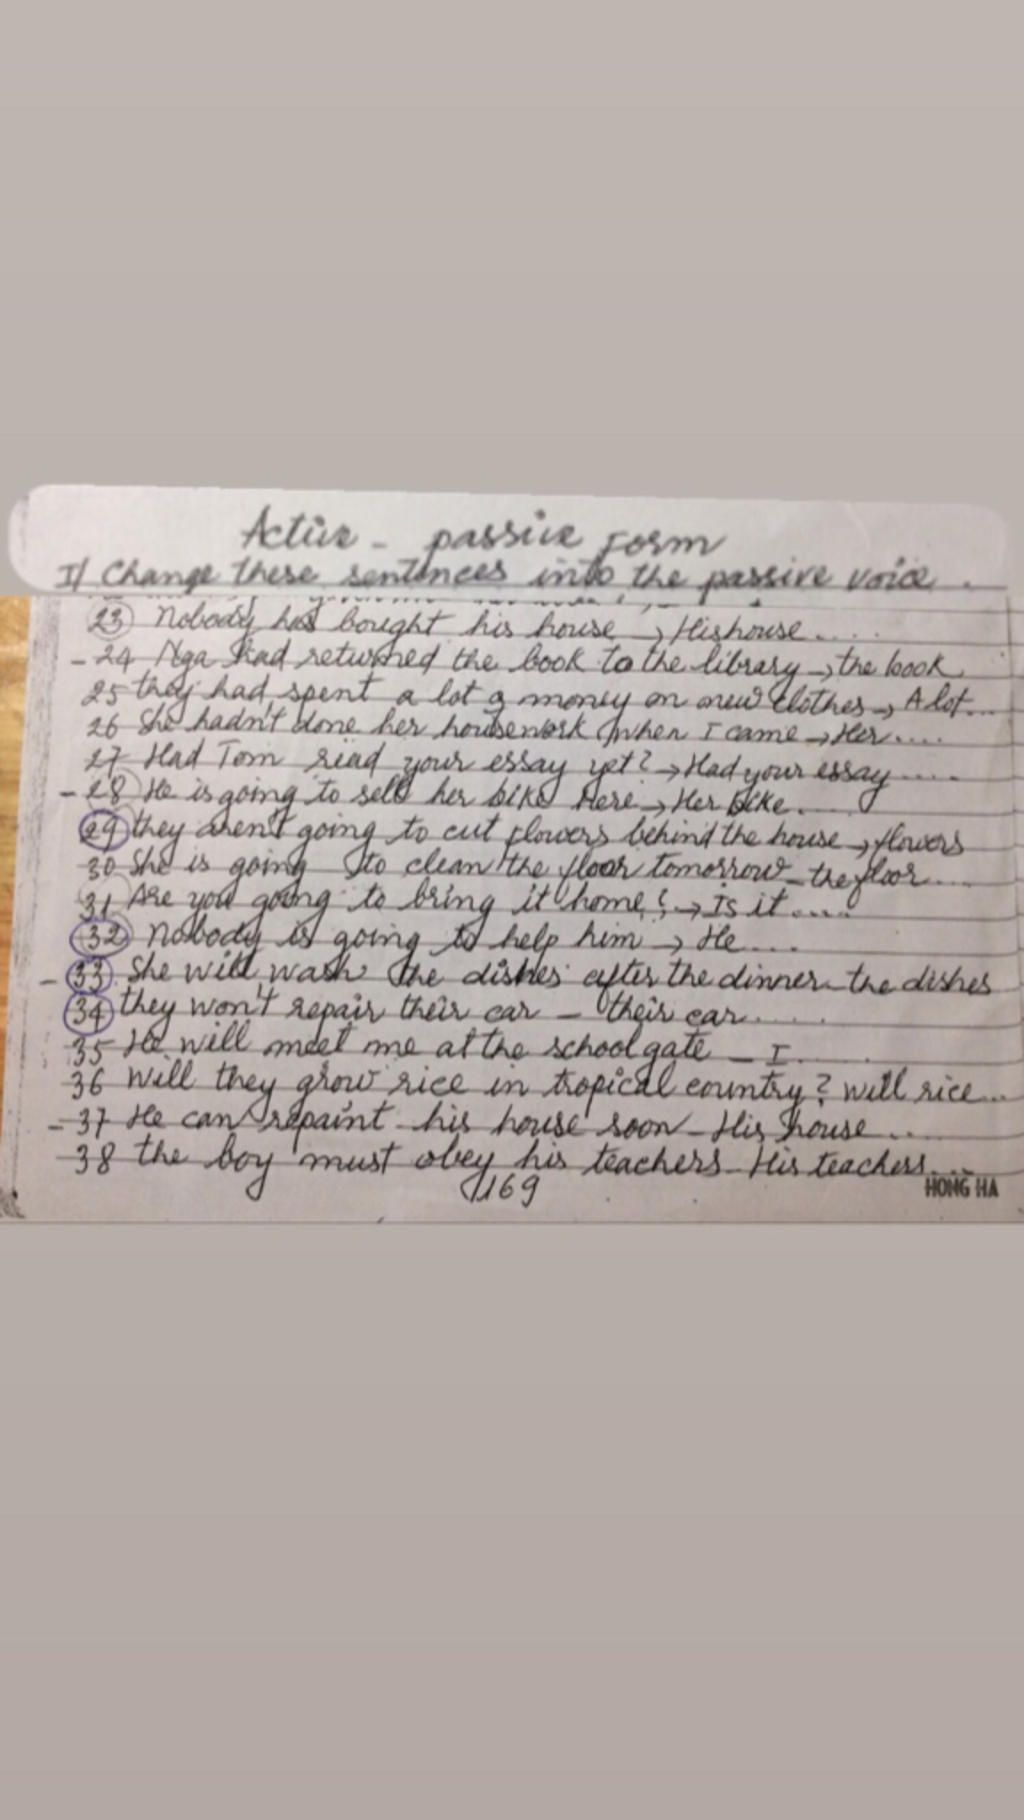 Active - passive Form
I/ Change these sentences into the passive voice.
23 Nobody has bought his house → His house.....
- 24 Nga had returned the book to the library → the book
25 they had spent a lot of money on new clothes → A lot...
26 She hadn't done her housework when I came → Her....
27 Had Tom read your essay yet? → Had your essay.....
- 28 He is going to sell her bike here → Her bike.
29 they aren't going to cut flowers behind the house → flowers
30 She is going to clean the floor tomorrow - the floor....
31 Are you going to bring it home? → Is it....
32 Nobody is going to help him → He....
- 33 She will wash the dishes after the dinner - the dishes
34 they won't repair their car - their car.....
35 He will meet me at the school gate - I....
36 Will they grow rice in tropical country? Will rice...
- 37 He can repaint his house soon - His house....
38 the boy must obey his teachers - His teachers....
169
HONG HA